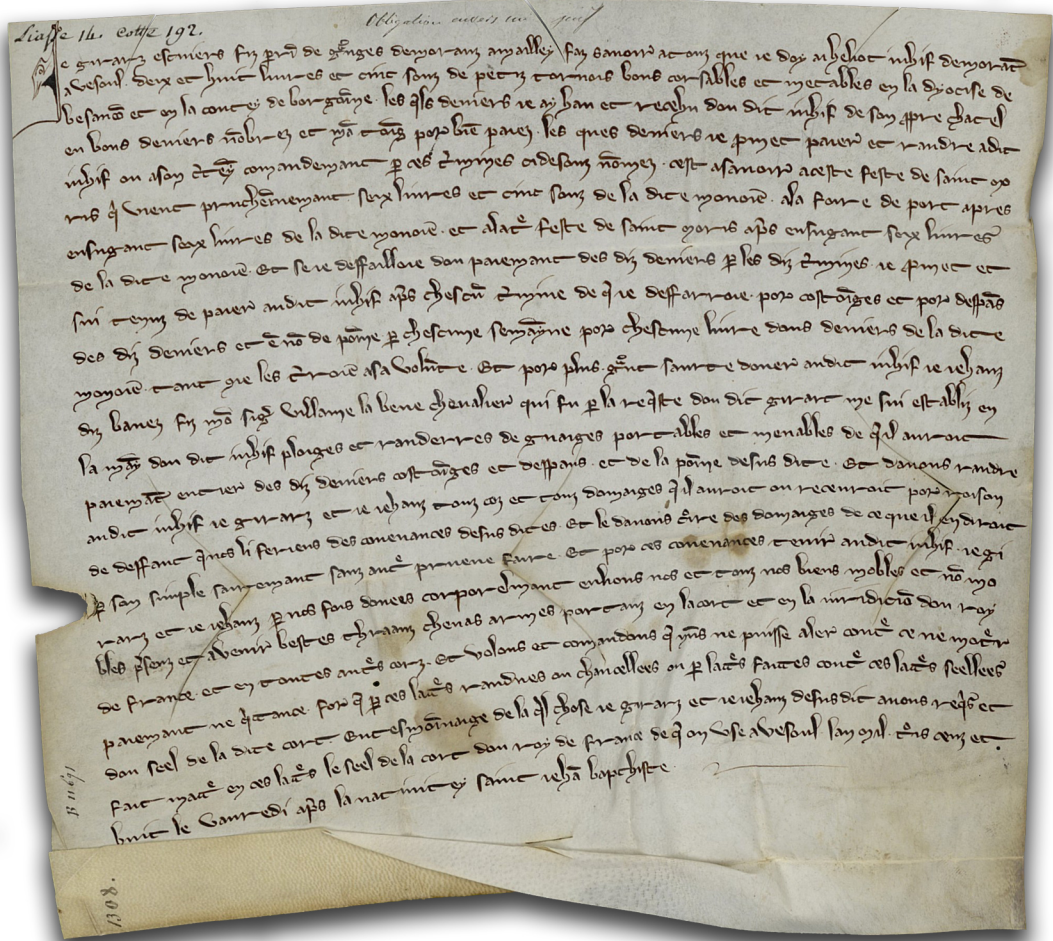 Liasse 14. cotte 192.
Obligation envers un juif
Je girarz escuiers fiz perrō de grāges demoranz a mailley faz savoir a touz que ie doy a heliot iuhif demorāt
a vesoul deix et huit livres et cinc souz de petiz tornois bons corsables et metables en la dyocise de
besancō et en la contey de borgoīne les q̄ls deniers ie ay hau et recehu dou dit iuhif de son ppre chatel
en bons deniers nōbrez et por biē paiez les ques deniers ie pmet paier et randre a dit
iuhif ou a son comandemant p ces t̄mines ci desouz nōmez cest a savoir a ceste feste de saint mo
ris q̄ vient pruchēnemant seix livres et cinc souz de la dite monoie a la foire de port apres
ensugant seix livres de la dite monoie et a lat̄ feste de saint moris ap̄s ensugant seix livres
de la dite monoie Et se ie deffailloie dou paiemant des diz deniers p les diz t̄mines ie pmet et
sui tenuz de paier au dit iuhif ap̄s chescū t̄mine de q̄ ie deffarroie por costāges et por despās
des diz deniers et de poīne p chescune semāyne por chescune livre dous deniers de la dite
monoie tant que les a sa volūte Et por plus gānt saurte doner au dit iuhif ie iehanz
diz banez fiz mō sigr Willame la bene chevalier qui fu p la req̄ste dou dit girart me sui establiz en
la māy dou dit iuhif ploiges et randerres de guaiges portables et menables de q̄ il auroit
paiemāt entier des diz deniers costāges et despans et de la poīne desus dite Et davons randre
au dit iuhif ie girarz et ie iehanz touz coz et touz domaiges q̄ il auroit ou recevroit por roison
de deffaut q̄ nos li feriens des covenances desus dites Et le davons c̄rire des domaiges de ce que il en diroit
p son simple sairemant sanz aut̄ prueve faire Et por ces covenances tenir au dit iuhif ie gi
rarz et ie iehanz p nos fois donees corporelmant en hiens nos et touz nos biens mobles et nō mo
bles p̄senz et a venir bestes thraanz chevas armes portanz en la cort et en la iuridiciō dou roy
de france et en toutes aut̄s corz Et volons et comandons q̄ nuns ne puisse aler cont̄ ce ne mot̄r
paiemant ne q̄tance for q̄ p ces lat̄s randues ou chancellees ou p lat̄s faites cont̄ ces lat̄s seellees
dou seel de la dite cort En tesmoīnaige de la q̄l chose ie girarz et ie iehanz desus dit avons req̄s et
fait mat̄ en ces lat̄s le seel de la cort dou roy de france de q̄ on use a vesoul lan mil t̄is cenz et
huit le vanredi ap̄s la nativitey saint iehā baptiste
B 11691
1308.